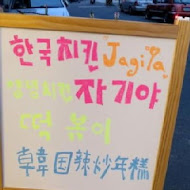 한국치킨 Jagiya
양념치킨 자기야
떡볶이
韓国辣炒年糕